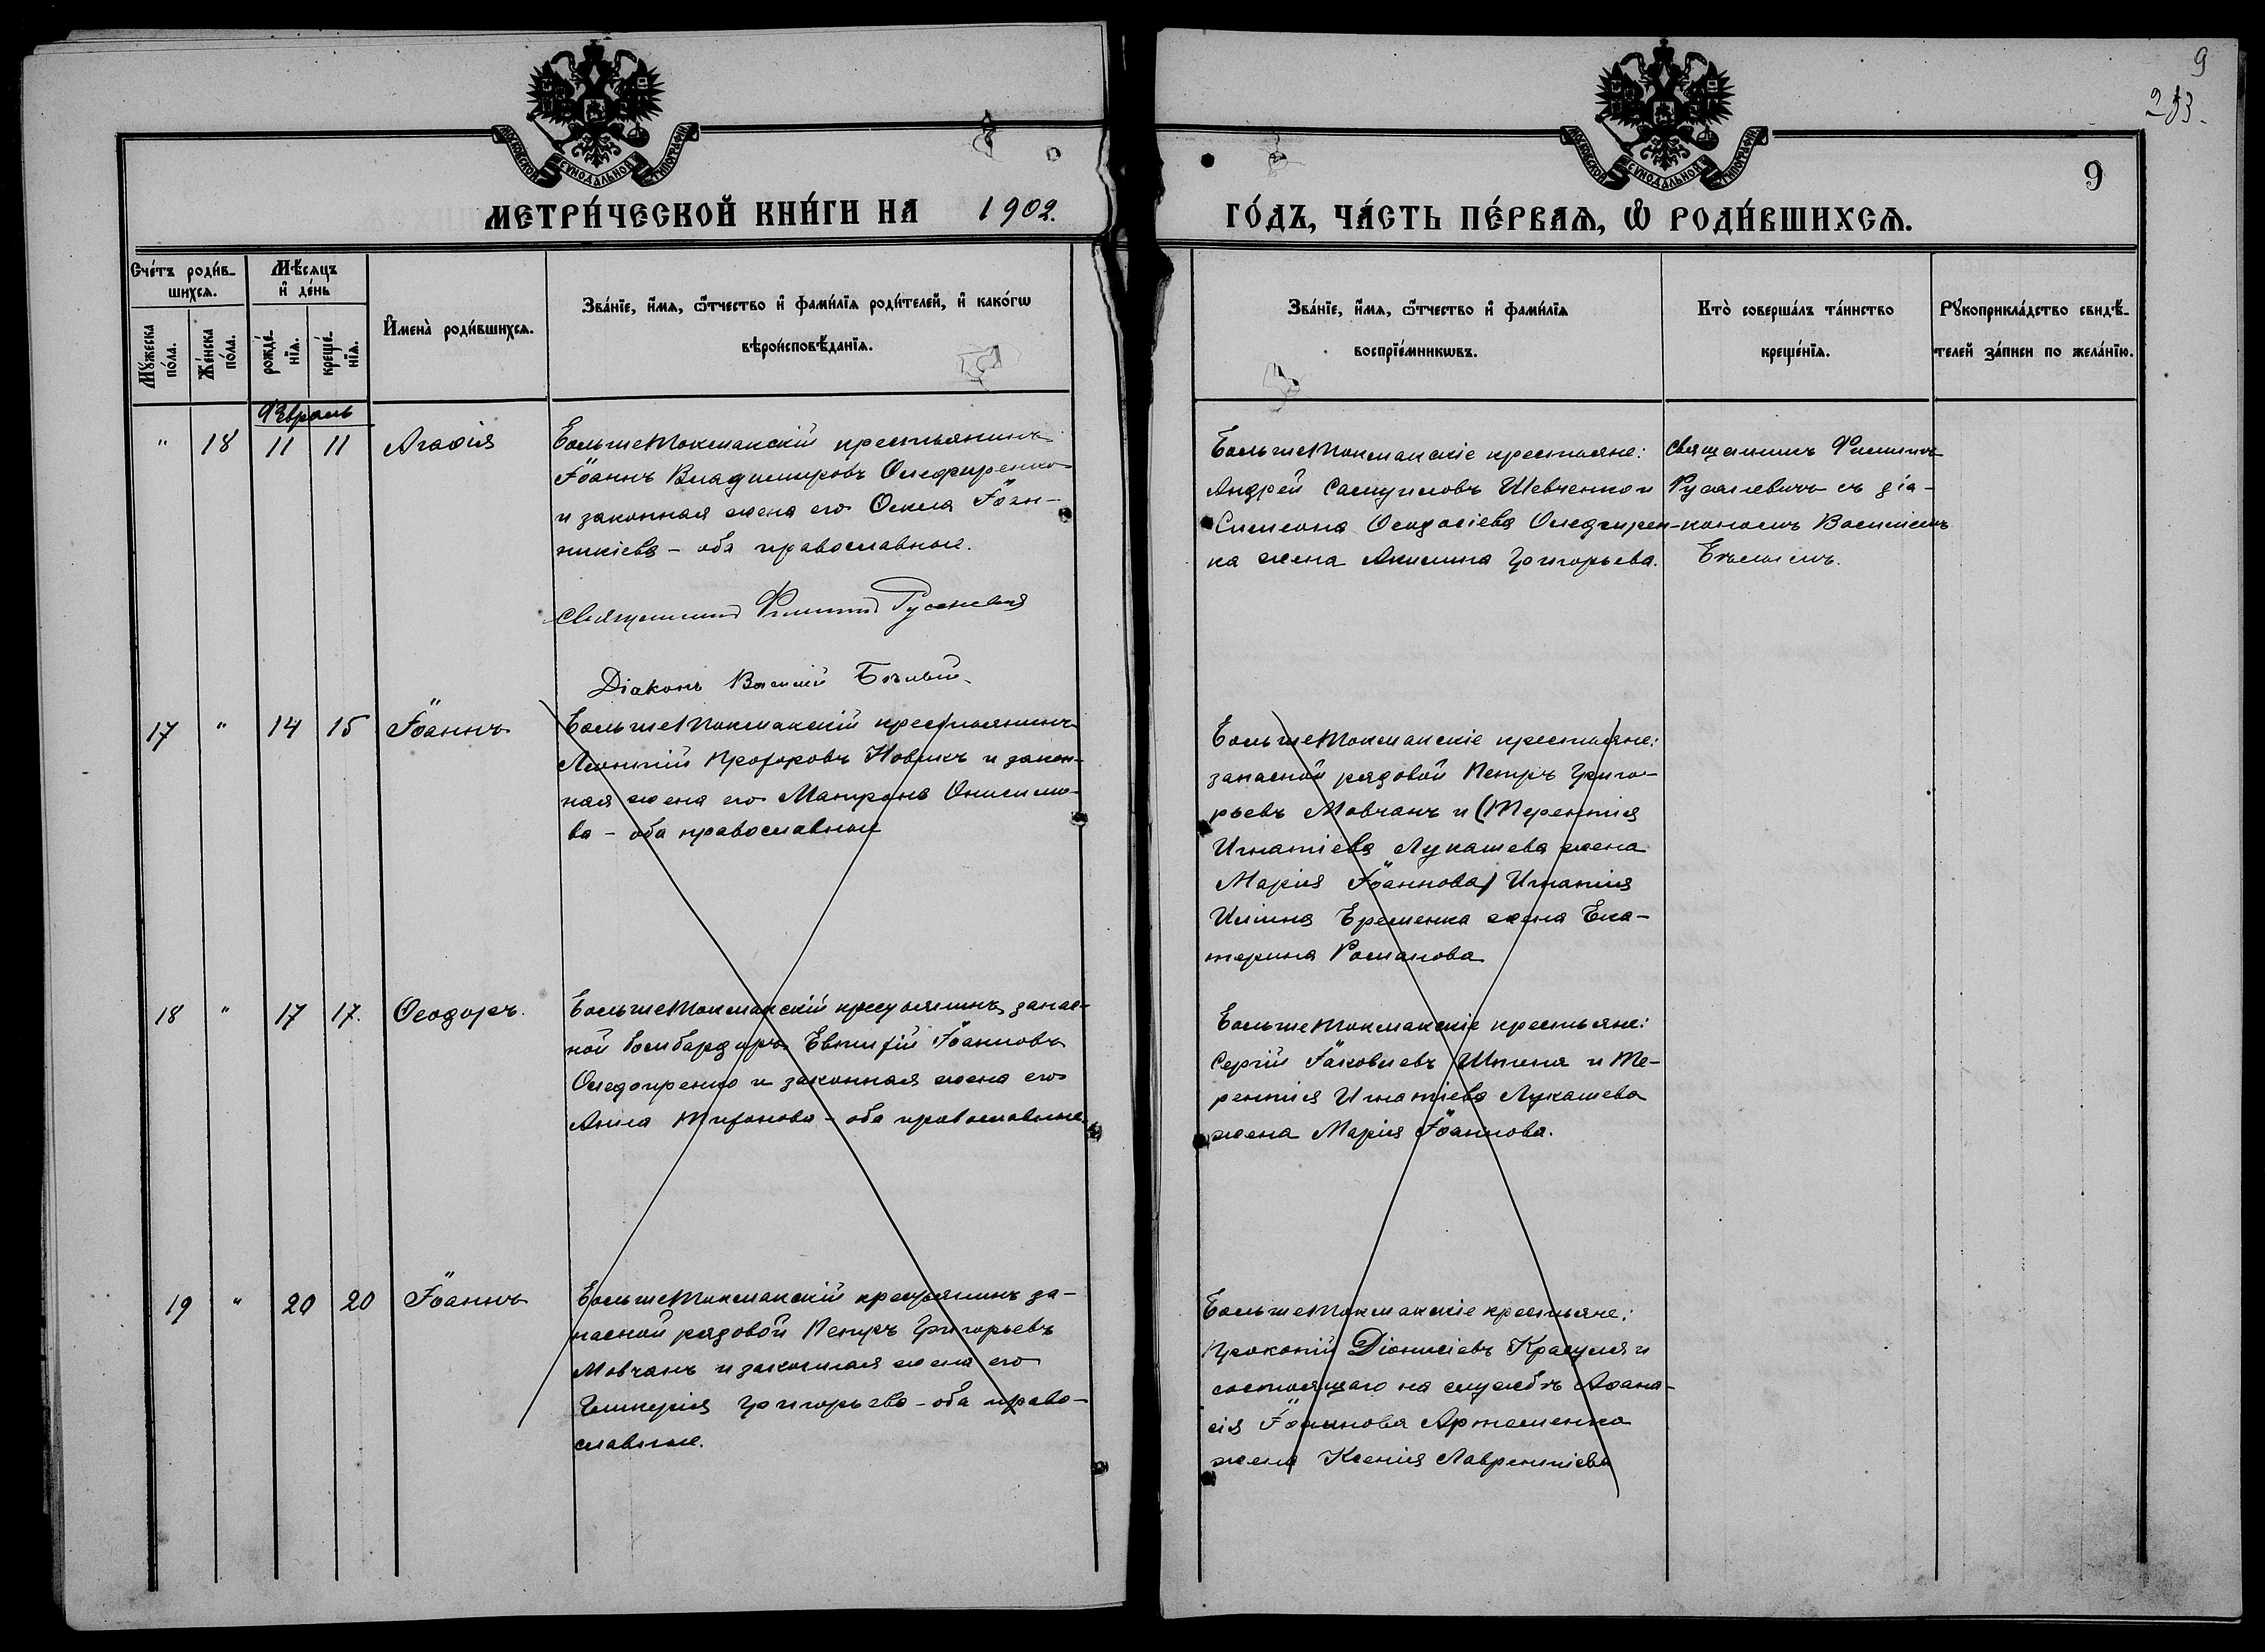 9
253.
9
МОСКОВСКОЙ СУНОДАЛЬНОЙ ТИПОГРАФІИ
МОСКОВСКОЙ СУНОДАЛЬНОЙ ТИПОГРАФІИ
МЕТРИ́ЧЕСКОЙ КНИ́ГИ НА 1902.
ГО́ДЪ, ЧА́СТЬ ПЕ́РВАѦ, Ѽ РОДИ́ВШИХСѦ.
Сче́тъ роди́в-
шихсѧ.
Мѣ́сѧцъ
и҆ де́нь
Мꙋ́жеска
по́ла.
Же́нска
по́ла.
рожде́-
нїѧ.
креще́-
нїѧ.
И҆мена̀ роди́вшихсѧ.
Зва́нїе, и҆́мѧ, ѻ҆́тчество и҆ фами́лїѧ роди́телей, и҆ како́гѡ
вѣроисповѣ́данїѧ.
Зва́нїе, и҆́мѧ, ѻ҆́тчество и҆ фами́лїѧ
воспрїе́мникѡвъ.
Кто̀ соверша́лъ та́инство
креще́нїѧ.
Рꙋкоприкла́дство свидѣ́-
телей за́писи по жела́нїю.
Февраль
" 18 11 11 Агаѳія
БольшеТокмакскій крестьянинъ
Іоаннъ Владимировъ Олефиренко
и законная жена его Ѳекла Іоан-
никіева - оба православные.
Священникъ Филиппъ Русаневичъ
Діаконъ Василій Бѣлый.
БольшеТокмакскіе крестьяне:
Андрей Самуиловъ Шевченко и
Симеона Ѳеодосіева Олефирен-
ка жена Акилина Григорьева.
Священникъ Филиппъ
Русаневичъ съ діа-
кономъ Василіемъ
Бѣлымъ.
17 " 14 15 Іоаннъ
БольшеТокмакскій крестьянинъ
Леонтій Прохоровъ Новикъ и закон-
ная жена его Матрона Онисимо-
ва - оба православные
БольшеТокмакскіе крестьяне:
запасной рядовой Петръ Григо-
рьевъ Мовчанъ и (Терентія
Игнатіева Лукашева жена
Марія Іоаннова) Игнатія
Ильина Еременка жена Ека-
терина Романова
18 " 17 17. Ѳеодоръ.
БольшеТокмакскій крестьянинъ запас-
ной бомбардиръ Евтихій Іоанновъ
Олефиренко и законная жена его
Анна Трифонова - оба православные.
БольшеТокмакскіе крестьяне:
Сергій Іаковлевъ Шпиня и Те-
рентія Игнатіева Лукашева
жена Марія Іоаннова.
19 " 20 20 Іоаннъ
БольшеТокмакскій крестьянинъ за-
пасной рядовой Петръ Григорьевъ
Мовчанъ и законная жена его
Гликерія Григорьева - оба право-
славные.
БольшеТокмакскіе крестьяне:
Прокопій Діонисіевъ Красуля и
состоящаго на службѣ Аѳана-
сія Іоаннова Артеменка
жена Ксенія Лаврентіева